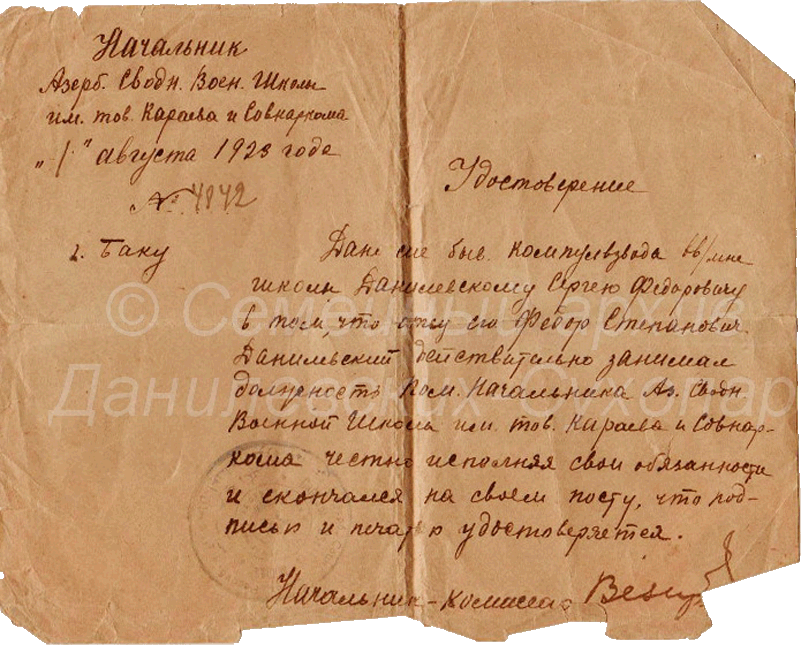 Начальник
Азерб. Сводн. Воен. Школы
им. тов. Караева и Совнаркома
"1" августа 1923 года
№ 4842
Удостоверение
г. Баку
Дано сие быв. Компулвзвода
школы Данилевскому Сергею Федоровичу
в том, что отец его Федор Степанович
Данильвский действительно занимал
должность Пом. Начальника Аз. Сводн.
Военной Школы им. тов. Караева и Совнар-
кома честно исполняя свои обязанности
и скончался на своем посту, что под-
писью и печатью удостоверяется.
Начальник-Комиссар
© Семейный архив
Данилевских